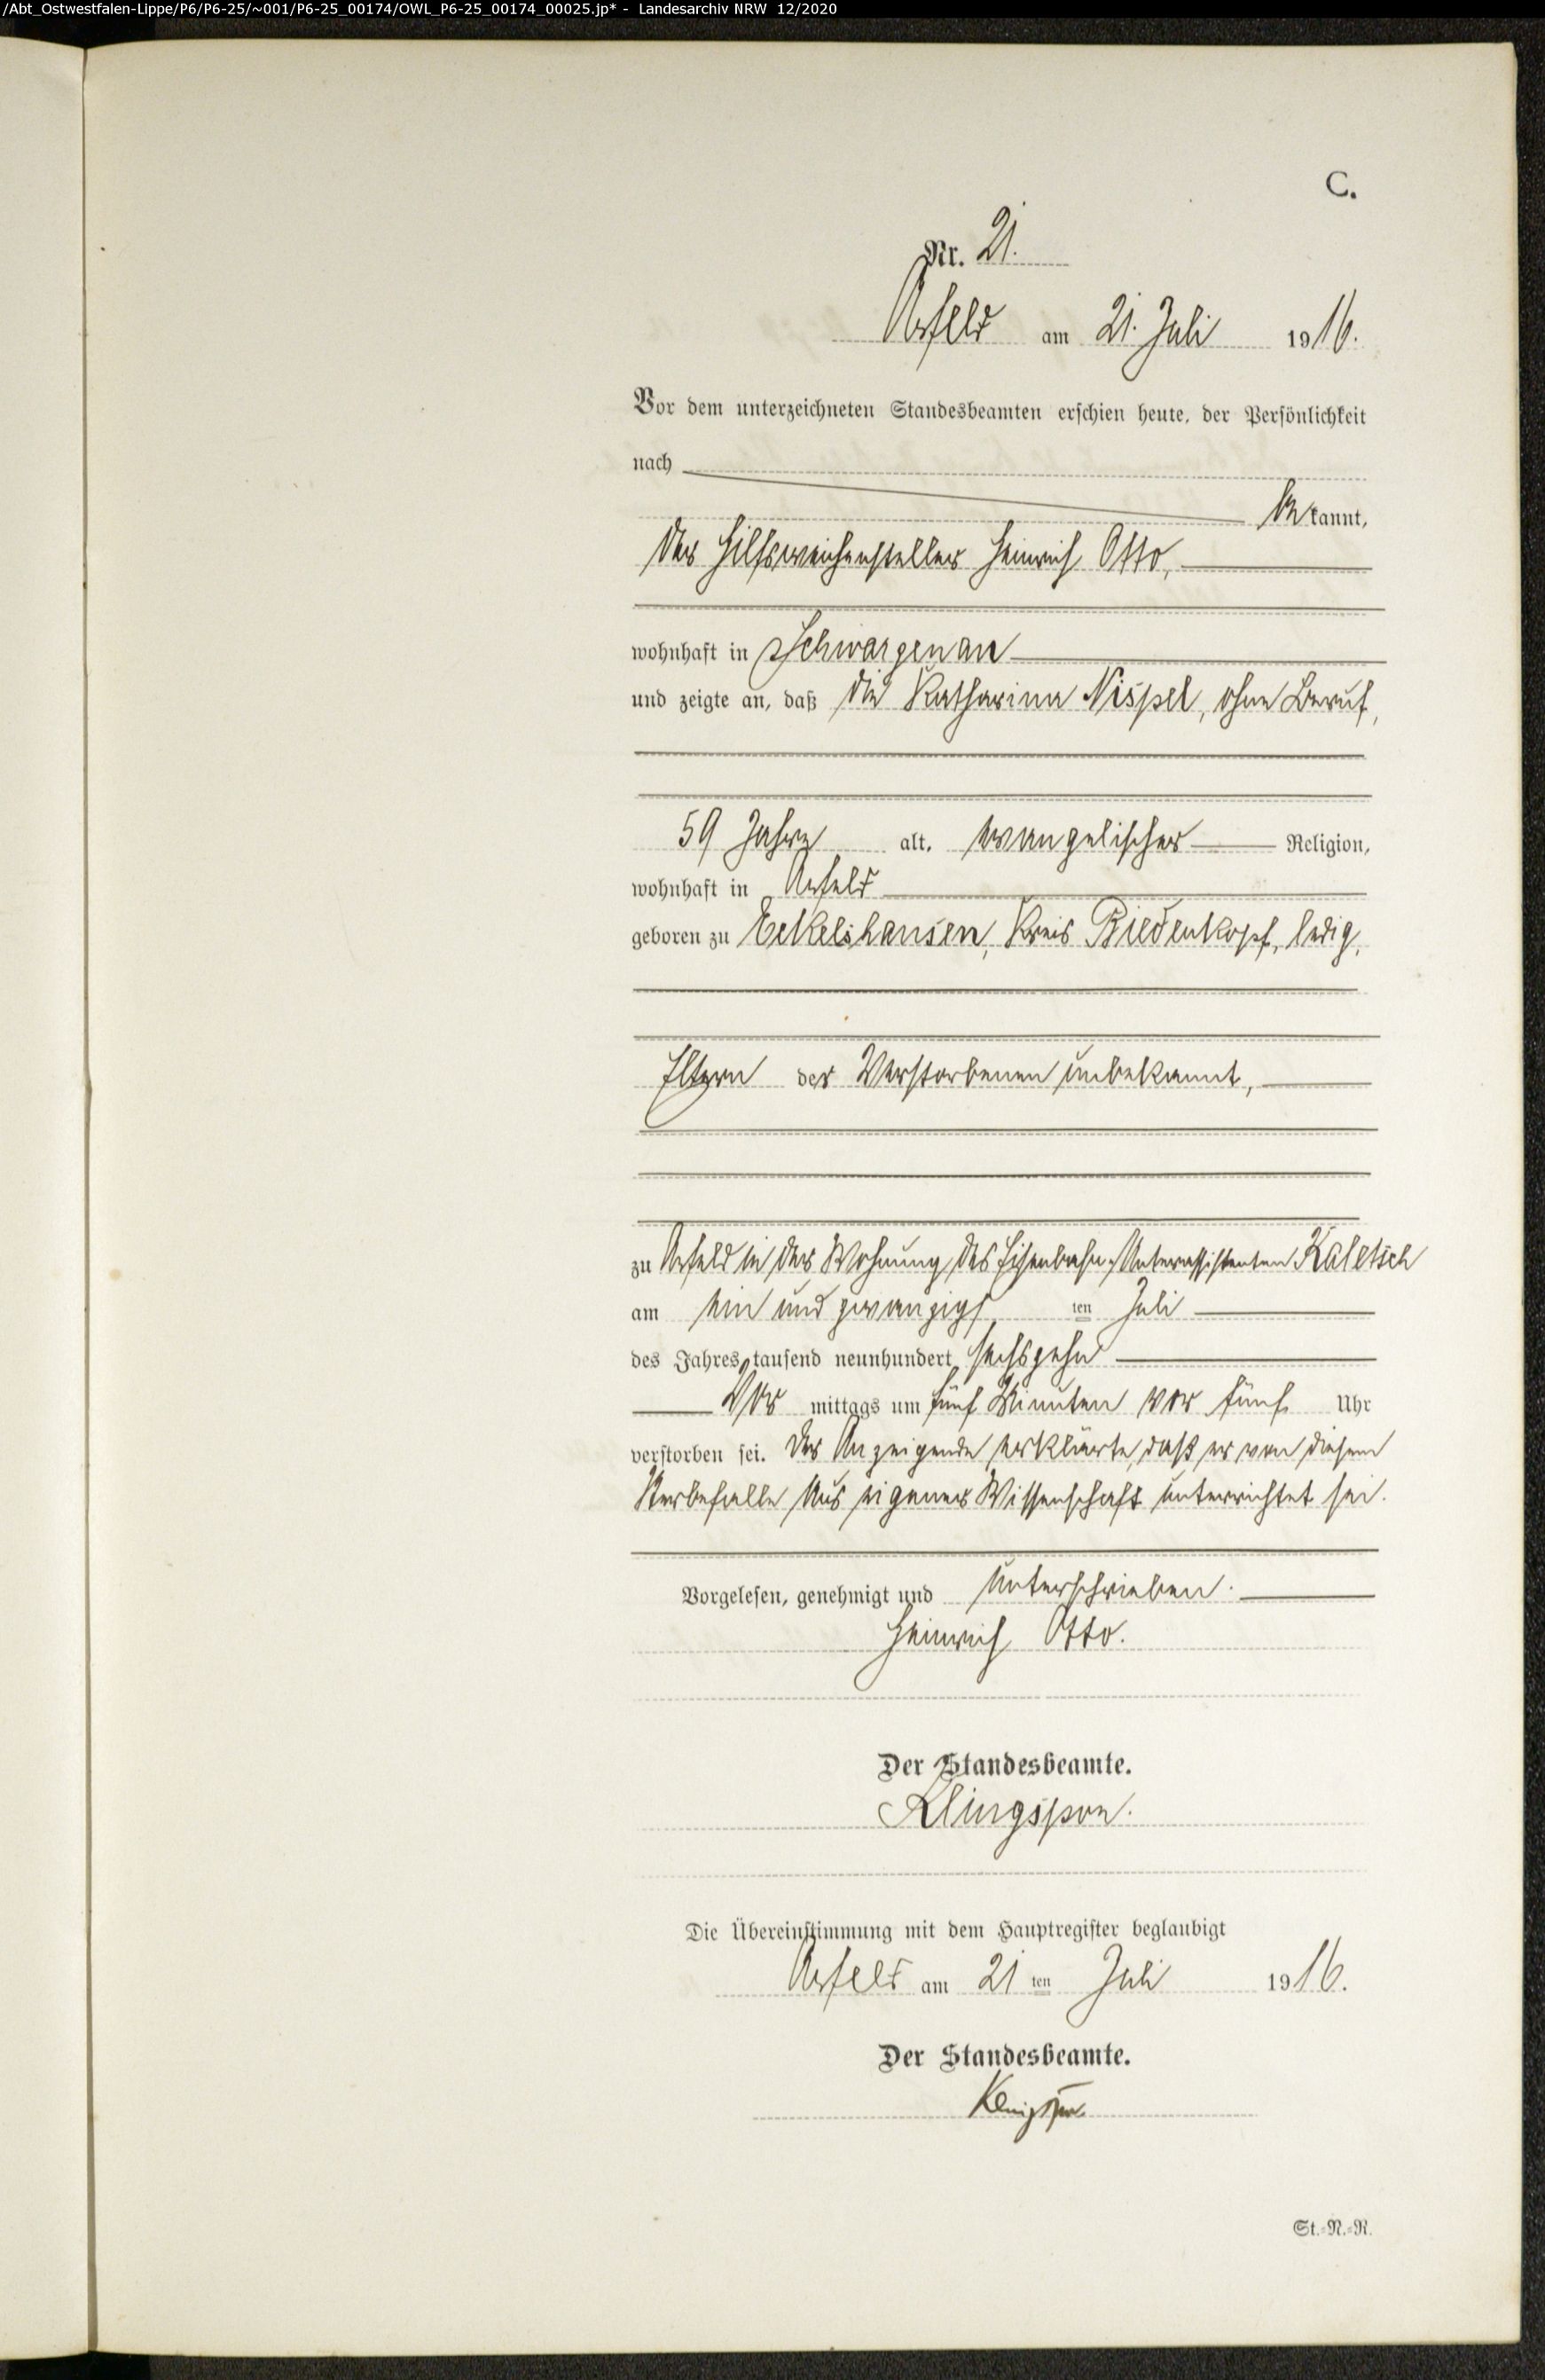 /Abt_Ostwestfalen-Lippe/P6/P6-25/~001/P6-25_00174/OWL_P6-25_00174_00025.jp* - Landesarchiv NRW 12/2020
C.
Nr. 21.
Arfeld am 21. Juli 1916.
Vor dem unterzeichneten Standesbeamten erschien heute, der Persönlichkeit
nach
bekannt,
der Hilfsweichensteller Heinrich Otto,
wohnhaft in Schwarzenau
und zeigte an, daß die Katharina Nispel, ohne Beruf,
59 Jahre alt, evangelischer Religion,
wohnhaft in Arfeld
geboren zu Eckelshausen, Kreis Biedenkopf, ledig,
Eltern der Verstorbenen unbekannt,
zu Arfeld in der Wohnung des Eisenbahn-Unterassistenten Kaletsch
am ein und zwanzigsten Juli
des Jahres tausend neunhundert sechszehn
Vormittags um fünf Minuten vor fünf Uhr
verstorben sei. Der Anzeigende erklärte, daß er von diesem
Sterbefalle aus eigener Wissenschaft unterrichtet sei.
Vorgelesen, genehmigt und unterschrieben.
Heinrich Otto.
Der Standesbeamte.
Klingspor.
Die Übereinstimmung mit dem Hauptregister beglaubigt
Arfeld am 21ten Juli 1916.
Der Standesbeamte.
Klingspor.
St.-N.-R.